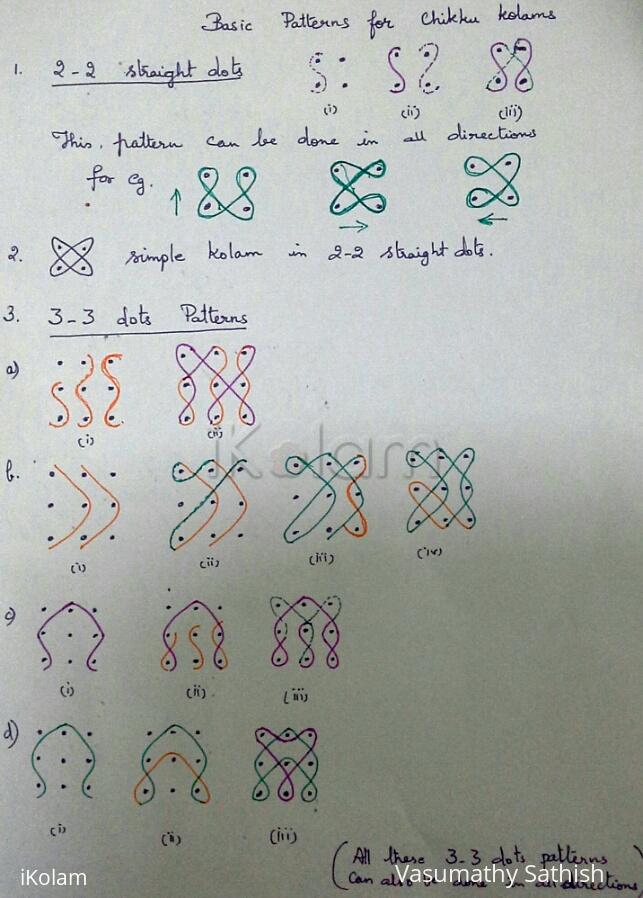 Basic Patterns for Chikku kolams
1. 2-2 straight dots
(i) (ii) (iii)
This, pattern can be done in all directions
for eg.
2. simple kolam in 2-2 straight dots.
3. 3-3 dots Patterns
a)
(i) (ii)
iKolam
b.
(i) (ii) (iii) (iv)
c)
(i) (ii) (iii)
d)
(i) (ii) (iii)
(All these 3-3 dots patterns
can also be done in all directions)
iKolam
Vasumathy Sathish